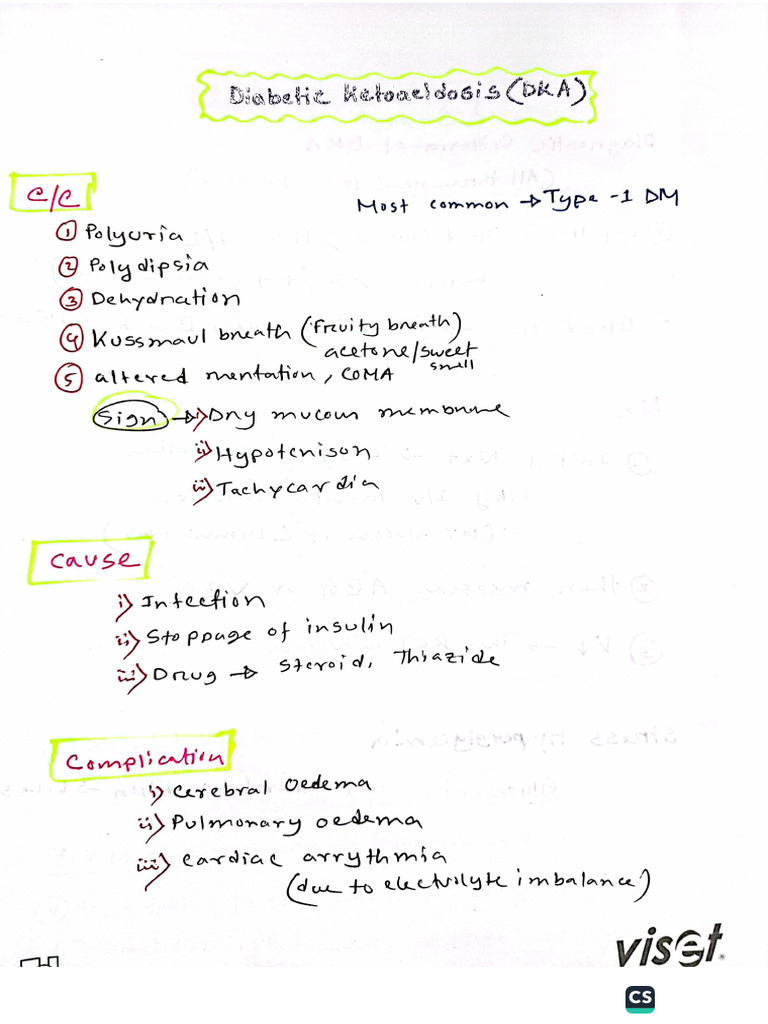 Diabetic Ketoacidosis (DKA)
C/C
Most common → Type -1 DM
① Polyuria
② Polydipsia
③ Dehydration
④ Kussmaul breath (fruity breath)
acetone/sweet
smell
⑤ altered mentation, COMA
Sign → i) Dry mucous membrane
ii) Hypotenison
ii) Tachycardia
Cause
i) Infection
ii) Stoppage of insulin
iii) Drug → steroid, Thiazide
Complication
i) Cerebral oedema
ii) Pulmonary oedema
iii) Cardiac arrythmia
(due to electrilyte imbalance)
viset
CS